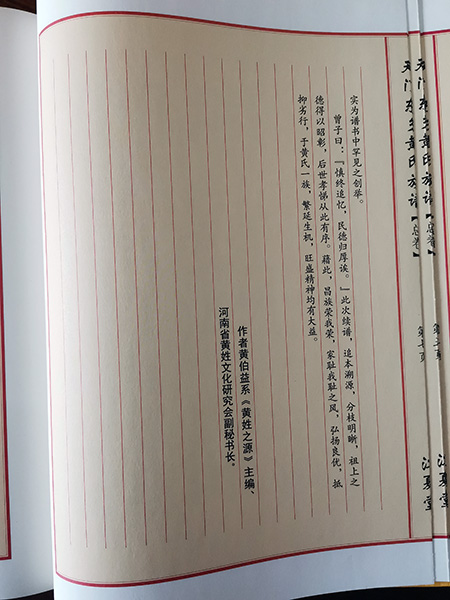 天门东乡黄氏族谱【总卷】 江夏堂
天门东乡黄氏族谱【总卷】 江夏堂
实为谱书中罕见之创举。
曾子曰：『慎终追忆，民德归厚诶。』此次续谱，追本溯源，分枝明晰，祖上之
德得以昭彰，后世孝悌从此有序。藉此，昌族荣我荣，家耻我耻之风，弘扬良优，抵
抑劣行，于黄氏一族，繁延生机，旺盛精神均有大益。
作者黄伯益系《黄姓之源》主编、
河南省黄姓文化研究会副秘书长。